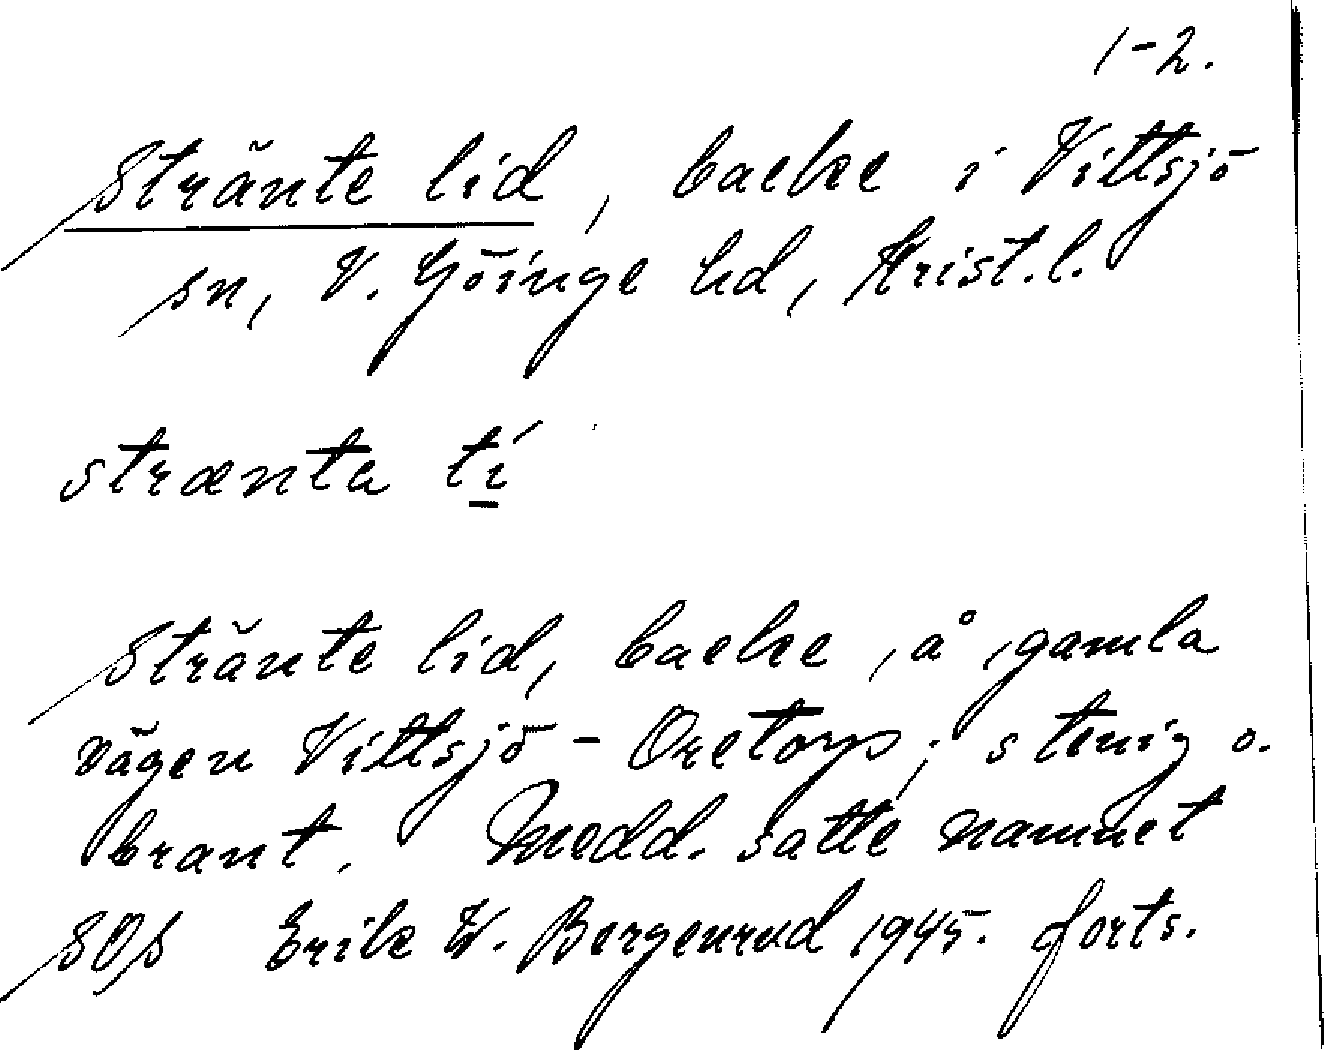 1-2.
Stränte lid, backe i Vittsjö
sn, V. Göinge hd, Krist.l.
strænta lí
Stränte lid, backe, å gamla
vägen Vittsjö - Oretorp; stenig o.
brant. Medd. satte namnet
SOS Erik W. Bergenrud 1945. forts.